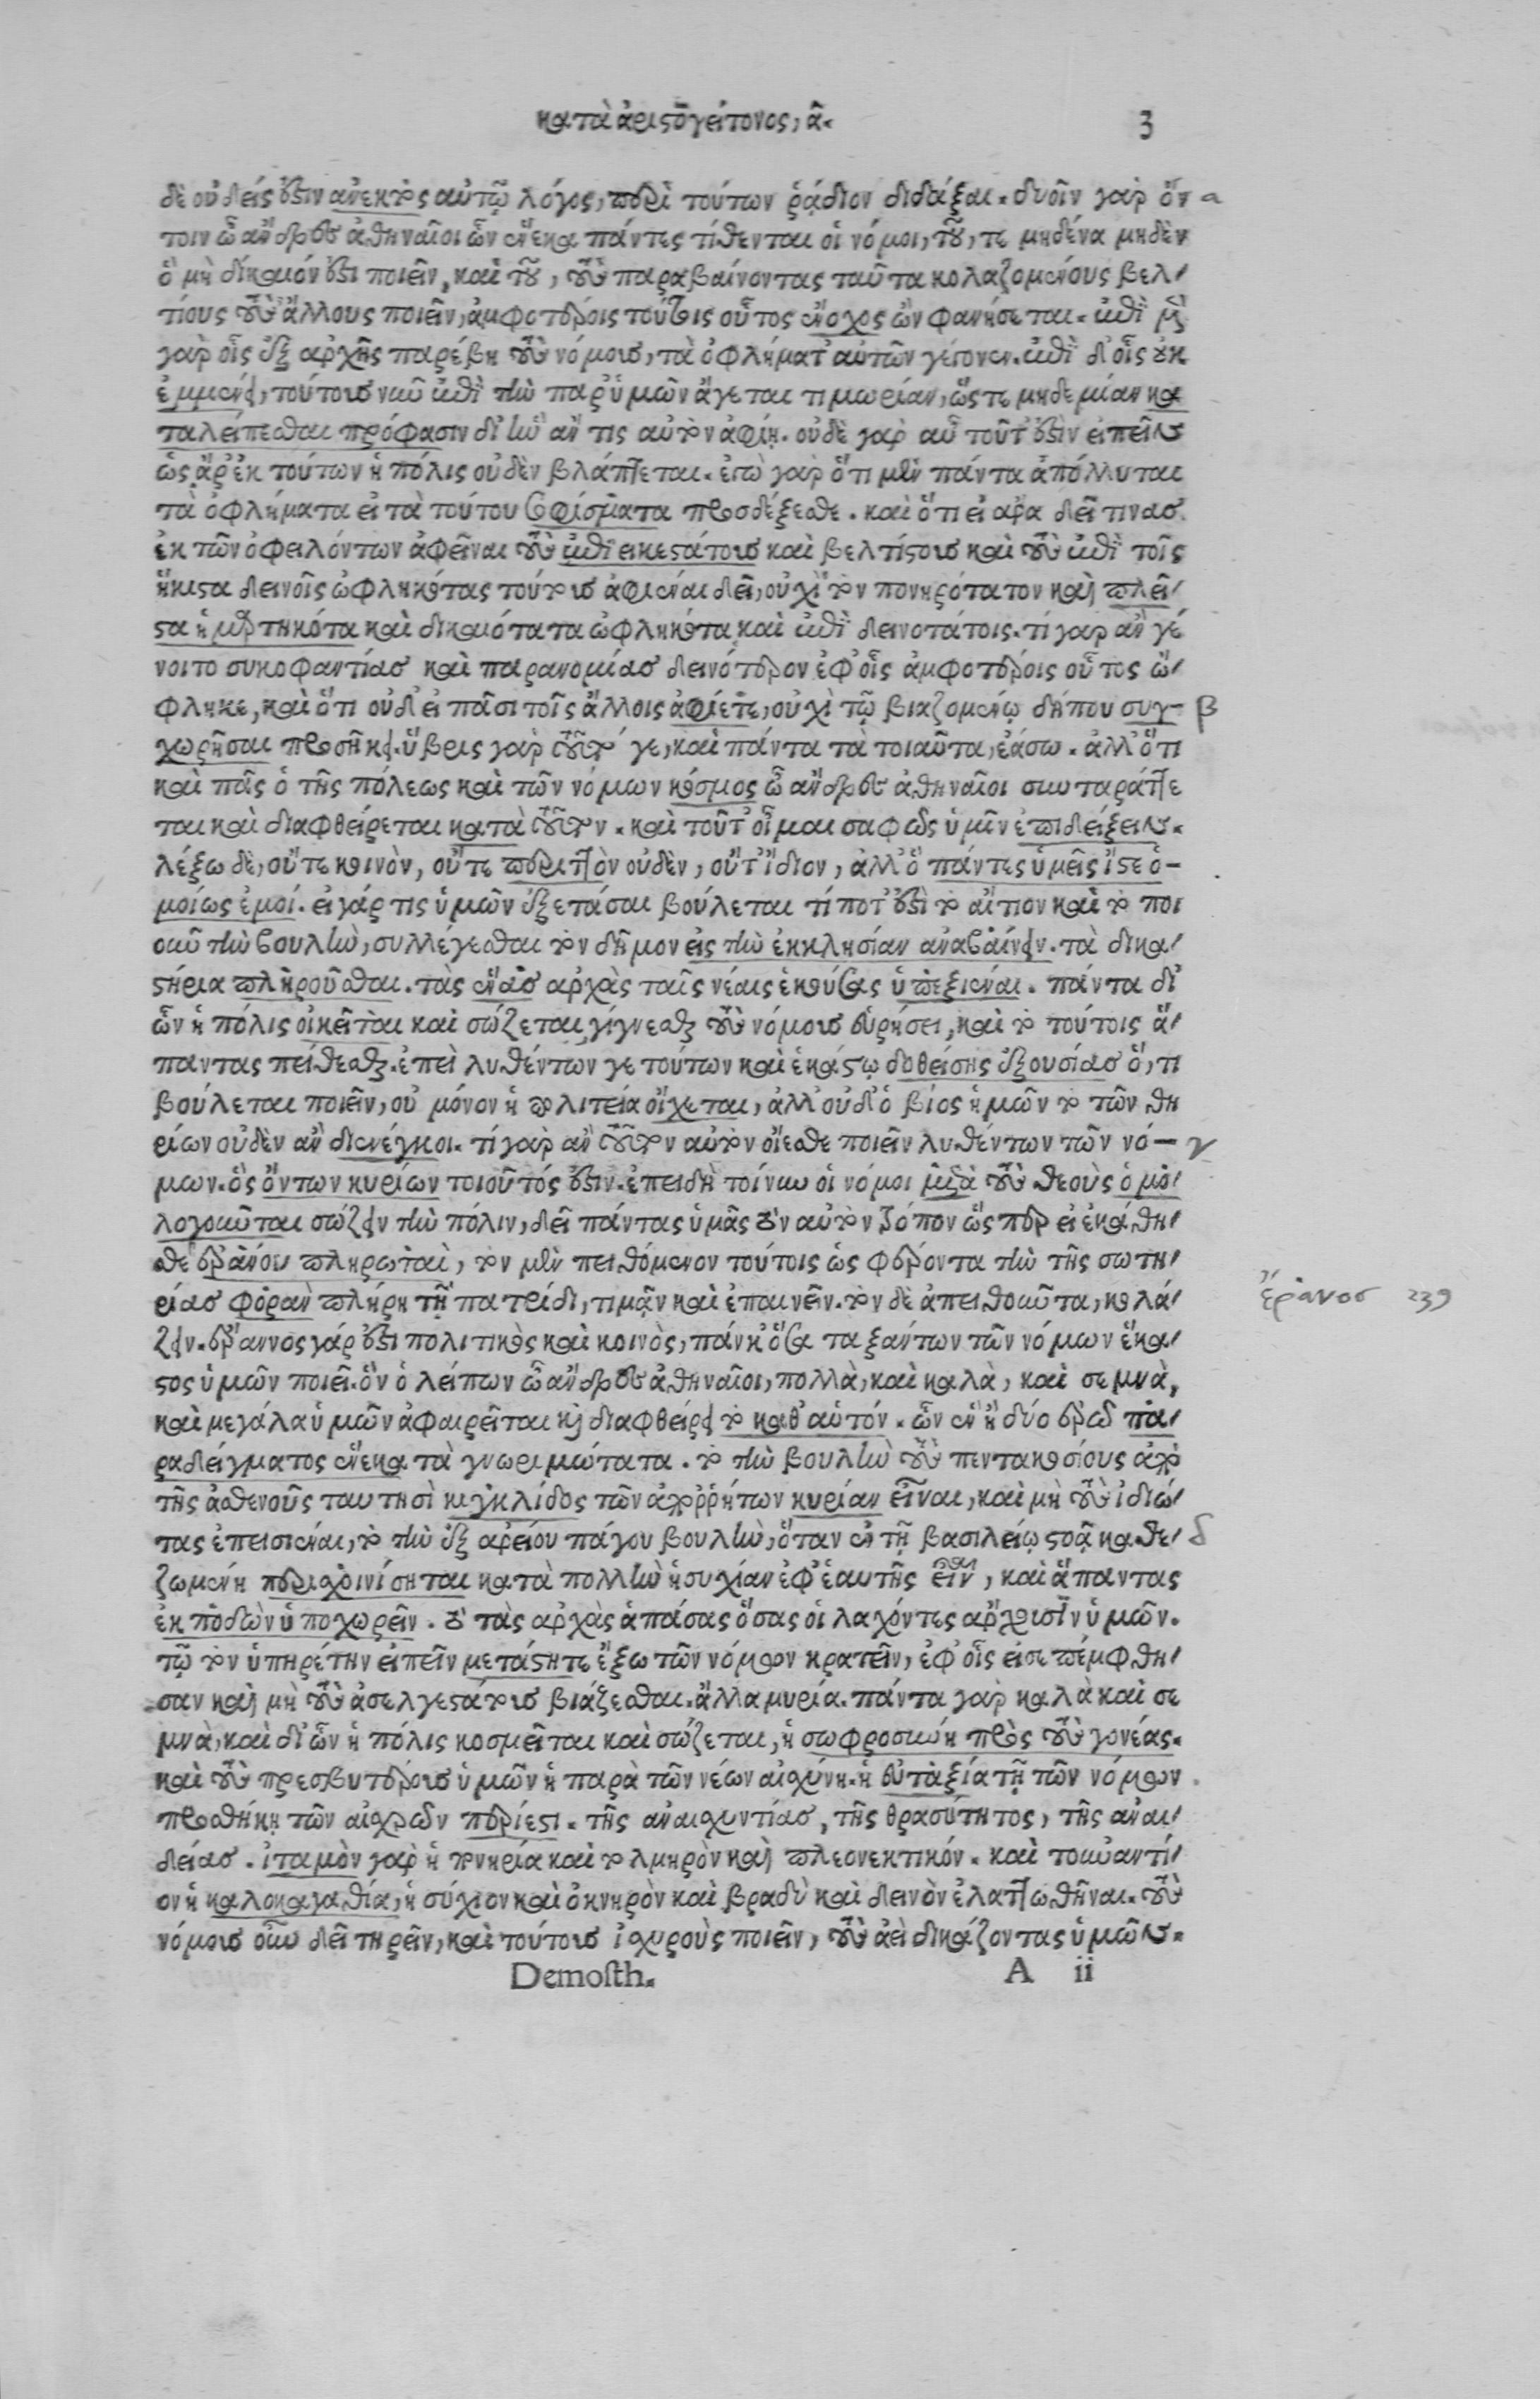 κατὰ ἀριστογείτονος, α. 3
δὲ οὐδείς ἐστιν ἀνεκτὸς αὐτῷ λόγος, περὶ τούτων ῥᾴδιον διδάξαι. δυοῖν γὰρ ὄν a
τοιν ὦ ἄνδρες ἀθηναῖοι ὧν ἕνεκα πάντες τίθενται οἱ νόμοι, τοῦ, τε μηδένα μηδὲν
ὃ μὴ δίκαιόν ἐστι ποιεῖν, καὶ τοῦ, τοὺς παραβαίνοντας ταῦτα κολαζομένους βελ
τίους τοὺς ἄλλους ποιεῖν, ἀμφοτέροις τούτοις οὗτος ἔνοχος ὢν φανήσεται. ἐπὶ μὲν
γὰρ οἷς ἐξ ἀρχῆς παρέβη τοὺς νόμους, τὰ ὀφλήματ' αὐτῶν γέγονεν. ἐπὶ δ' οἷς οὐκ
ἐμμένει, τούτοις νῦν ἐπὶ τὴν παρ' ὑμῶν ἄγεται τιμωρίαν, ὥστε μηδεμίαν κα
ταλείπεσθαι πρόφασιν δι' ἣν ἄν τις αὐτὸν ἀφίῃ. οὐδὲ γὰρ αὖ τοῦτ' ἐστὶν εἰπεῖν
ὡς ἄρ' ἐκ τούτων ἡ πόλις οὐδὲν βλάπτεται. ἐγὼ γὰρ ὅτι μὲν πάντα ἀπόλλυται
τὰ ὀφλήματα εἰ τὰ τούτου σοφίσματα προσδέξεσθε. καὶ ὅτι εἰ ἄρα δεῖ τινας
ἐκ τῶν ὀφειλόντων ἀφεῖναι τοὺς ἐπιεικεστάτους καὶ βελτίστους καὶ τοὺς ἐπὶ τοῖς
ἥκιστα δεινοῖς ὠφληκότας τούτους ἀφιέναι δεῖ, οὐχὶ τὸν πονηρότατον καὶ πλεῖ
στα ἡμαρτηκότα καὶ δικαιότατα ὠφληκότα, καὶ ἐπὶ δεινοτάτοις. τί γὰρ ἂν γέ
νοιτο συκοφαντίας καὶ παρανομίας δεινότερον ἐφ' οἷς ἀμφοτέροις οὗτος ὤ
φληκε, καὶ ὅτι οὐδ' εἰ πᾶσι τοῖς ἄλλοις ἀφίετε, οὐχὶ τῷ βιαζομένῳ δήπου συγ- β
χωρῆσαι προσήκει. ὕβρις γὰρ τοῦτό γε, καὶ πάντα τὰ τοιαῦτα, ἐάσω. ἀλλ' ὅτι
καὶ πᾶς ὁ τῆς πόλεως καὶ τῶν νόμων κόσμος ὦ ἄνδρες ἀθηναῖοι συνταράττε
ται καὶ διαφθείρεται κατὰ τοῦτον. καὶ τοῦτ' οἶμαι σαφῶς ὑμῖν ἐπιδείξειν.
λέξω δὲ, οὔτε καινὸν, οὔτε περιττὸν οὐδὲν, οὔτ' ἴδιον, ἀλλ' ὃ πάντες ὑμεῖς ἴστε ὁ-
μοίως ἐμοί. εἰ γάρ τις ὑμῶν ἐξετάσαι βούλεται τί ποτ' ἐστὶ τὸ αἴτιον καὶ τὸ ποι
οῦν τὴν βουλὴν, συλλέγεσθαι τὸν δῆμον εἰς τὴν ἐκκλησίαν ἀναβαίνειν. τὰ δικα
στήρια πληροῦσθαι. τὰς ἕνας ἀρχὰς ταῖς νέαις ἑκούσας ὑπεξιέναι. πάντα δι'
ὧν ἡ πόλις οἰκεῖται καὶ σώζεται, γίγνεσθαι τοὺς νόμους εὑρήσει, καὶ τὸ τούτοις ἅ
παντας πείθεσθαι. ἐπεὶ λυθέντων γε τούτων καὶ ἑκάστῳ δοθείσης ἐξουσίας ὅ, τι
βούλεται ποιεῖν, οὐ μόνον ἡ πολιτεία οἴχεται, ἀλλ' οὐδ' ὁ βίος ἡμῶν τοῦ τῶν θη
ρίων οὐδὲν ἂν διενέγκοι. τί γὰρ ἂν τοῦτον αὐτὸν οἴεσθε ποιεῖν λυθέντων τῶν νό— γ
μων. ὃς ὄντων κυρίων τοιοῦτός ἐστιν. ἐπειδὴ τοίνυν οἱ νόμοι μετὰ τοὺς θεοὺς ὁμο
λογοῦνται σώζειν τὴν πόλιν, δεῖ πάντας ὑμᾶς τὸν αὐτὸν τρόπον ὥσπερ εἰ ἐκάθη
σθε ἐράνου πληρωταὶ, τὸν μὲν πειθόμενον τούτοις ὡς φέροντα τὴν τῆς σωτη
ρίας φορὰν πλήρη τῇ πατρίδι, τιμᾷν καὶ ἐπαινεῖν. τὸν δὲ ἀπειθοῦντα, κολά ἔρανος 239
ζειν. ἔρανος γάρ ἐστι πολιτικὸς καὶ κοινὸς, πάνθ' ὅσα ταξάντων τῶν νόμων ἕκα
στος ὑμῶν ποιεῖ. ὃν ὁ λείπων ὦ ἄνδρες ἀθηναῖοι, πολλὰ, καὶ καλὰ, καὶ σεμνὰ,
καὶ μεγάλα ὑμῶν ἀφαιρεῖται καὶ διαφθείρει τὸ καθ' αὑτόν. ὧν ἓν ἢ δύο ἐρῶ πα
ραδείγματος ἕνεκα τὰ γνωριμώτατα. τὸ τὴν βουλὴν τοὺς πεντακοσίους ἀπὸ
τῆς ἀσθενοῦς ταυτησὶ κιγκλίδος τῶν ἀπορρήτων κυρίαν εἶναι, καὶ μὴ τοὺς ἰδιώ
τας ἐπεισιέναι, τὸ τὴν ἐξ ἀρείου πάγου βουλὴν, ὅταν ἐν τῇ βασιλείῳ στοᾷ καθε δ
ζομένη περισχοινίσηται κατὰ πολλὴν ἡσυχίαν ἐφ' ἑαυτῆς εἶναι, καὶ ἅπαντας
ἐκποδὼν ὑποχωρεῖν. τὸ τὰς ἀρχὰς ἁπάσας ὅσας οἱ λαχόντες ἄρχουσιν ὑμῶν.
τῷ τὸν ὑπηρέτην εἰπεῖν μετάστητε ἔξω τῶν νόμων κρατεῖν, ἐφ' οἷς εἰσεπέμφθη
σαν καὶ μὴ τοὺς ἀσελγεστάτους βιάζεσθαι. ἄλλα μυρία. πάντα γὰρ καλὰ καὶ σε
μνὰ, καὶ δι' ὧν ἡ πόλις κοσμεῖται καὶ σώζεται, ἡ σωφροσύνη πρὸς τοὺς γονέας.
καὶ τοὺς πρεσβυτέρους ὑμῶν ἡ παρὰ τῶν νέων αἰσχύνη. ἡ εὐταξία τῇ τῶν νόμων
προσθήκῃ τῶν αἰσχρῶν περίεστι. τῆς ἀναισχυντίας, τῆς θρασύτητος, τῆς ἀναι
δείας. ἰταμὸν γὰρ ἡ πονηρία καὶ τολμηρὸν καὶ πλεονεκτικόν. καὶ τοὐναντί
ον ἡ καλοκαγαθία, ἡσύχιον καὶ ὀκνηρὸν καὶ βραδὺ καὶ δεινὸν ἐλαττωθῆναι. τοὺς
νόμους οὖν δεῖ τηρεῖν, καὶ τούτους ἰσχυροὺς ποιεῖν, τοὺς ἀεὶ δικάζοντας ὑμῶν.
Demosth. A ii